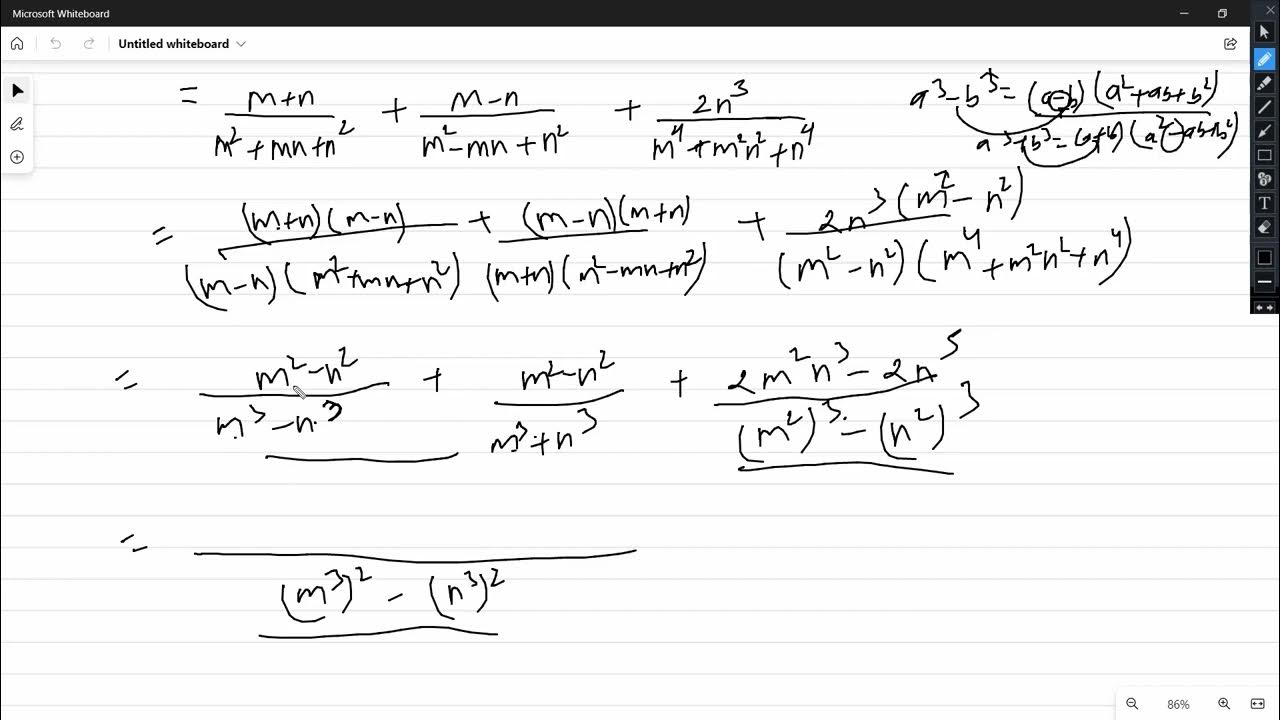 Microsoft Whiteboard
Untitled whiteboard
= (m+n)/(m²+mn+n²) + (m-n)/(m²-mn+n²) + 2n³/(m⁴+m²n²+n⁴)
a³-b³=(a-b)(a²+ab+b²)
a³+b³=(a+b)(a²-ab+b²)
= (m+n)(m-n)/(m-n)(m²+mn+n²) + (m-n)(m+n)/(m+n)(m²-mn+n²) + 2n³(m²-n²)/(m²-n²)(m⁴+m²n²+n⁴)
= (m²-n²)/(m³-n³) + (m²-n²)/(m³+n³) + (2m²n³-2n⁵)/((m²)³-(n²)³)
=
(m³)² - (n³)²
T
86%